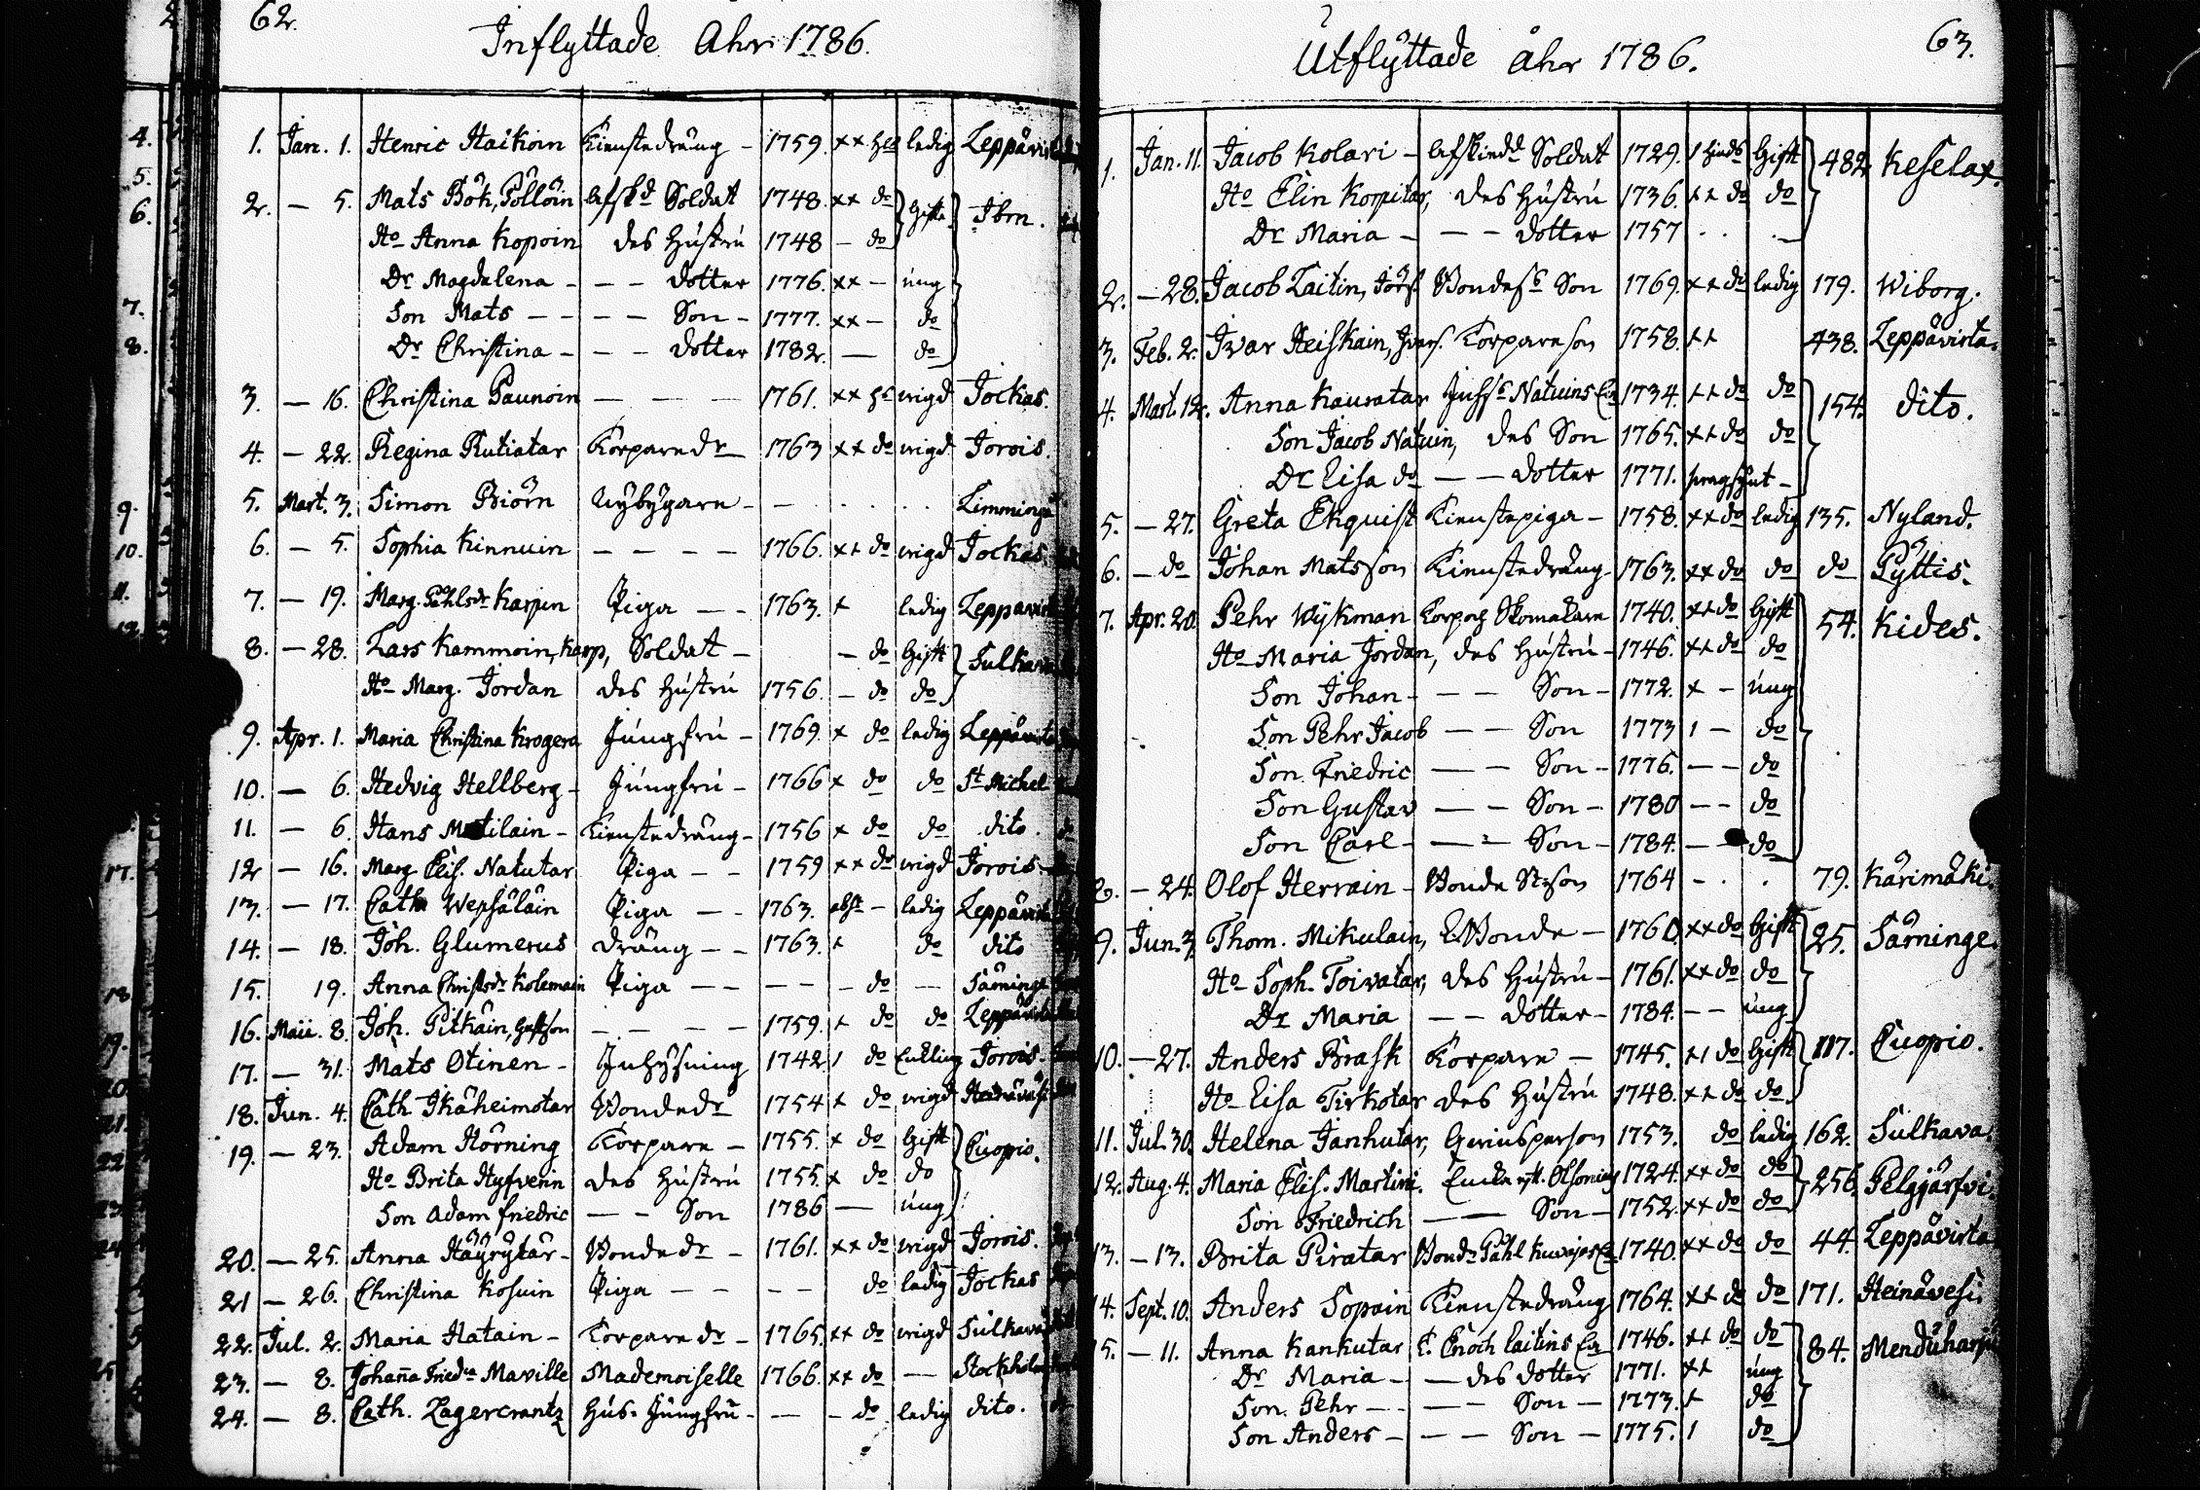 62.
Inflyttade Åhr 1786.
1. Jan. 1. Henric Haikoin Tienstedräng - 1759. ++ ledig Leppävirta
2. - 5. Mats Böök, Pöllöin afsk.d Soldat 1748. ++ do Gifta Ibm.
Ho Anna Kopoin des Hústrú 1748 - do
Dr Magdalena - - - dotter 1776. ++ - úng
Son Mats - - - - Son - 1777. ++ - do
Dr Christina - - - dotter 1782. - do
3. - 16. Christina Paunoin - - - 1761. ++ wigd Jockas.
4. - 22. Regina Rutiatar Torpare dr 1763 ++ do wigd Jorois.
5. Mart. 3. Simon Biörn Nybÿgare - - . . . Limminga
6. - 5. Sophia Kinnuin - - - - 1766. ++ do wigd Jockas.
7. - 19. Marg. Påhlsdr Karjun Piga - - 1763. + ledig Leppävirta
8. - 28. Lars Kammoin, Karp, Soldat - - do Gift Sulkava
Ho Marg. Jordan des Hústrú 1756. - do do
9. Apr. 1. Maria Christina Krogera Júngfrú - 1769. + do ledig Leppävirta
10. - 6. Hedvig Hellberg - Júngfrú - 1766 + do do St Michel
11. - 6. Hans Matilain - Tienstedräng - 1756 + do do dito.
12 - 16. Marg. Elis. Natutar Piga - - 1759 ++ do wigd Jorois
13. - 17. Cath Wepsäläin Piga - - 1763. abst - ledig Leppävirta
14. - 18. Joh. Glumerus dräng - - 1763. + do dito
15. 19. Anna Christsdr Kolemain Piga - - - - - do - Särninge
16. Maii. 8. Joh. Pitkäin, Gustson - - - - 1759. + do do Leppävirta
17. - 31. Mats Otinen - Inhÿsning 1742 1 do Enkling Jorois.
18. Jun. 4. Cath Ikäheimotar Bonde dr 1754 + do wigd Heinävesi
19. - 23. Adam Hörning Torpare - 1755. + do Gift Cuopio.
Ho Brita Hyfvenin des Hústrú 1755. + do do
Son Adam Friedric - - Son 1786 - úng
20. - 25. Anna Häÿrÿtär - Bonde dr - 1761. ++ do wigd Jorois.
21 - 26. Christina Kosuin Piga - - - - do ledig Jockas
22. Jul. 2. Maria Hatain - Torpare dr - 1765. ++ do wigd Sulkava
23. - 8. Johaña Fried:ca Maville Mademoiselle 1766. ++ do - Stockholm
24. - 8. Cath. Lagercrantz Hús-Júngfrú - - - do ledig dito.
63.
Utflyttade åhr 1786.
1. Jan. 11. Jacob Kolari - afskiedd Soldat 1729. 1 Gift 482 Keselax.
Ho Elin Korpitar, des Hústrú 1736. ++ do do
Dr Maria - - - dotter 1757 . . . -
2. - 28. Jacob Laitin, Jörs. Bondes Son 1769. ++ do ledig 179. Wiborg.
3. Feb. 2. Ivar Heiskain, Ivars. Torpareson 1758. ++ 438. Leppävirta.
4. Mart. 12. Anna Kauratar Natuins Ea 1734. ++ do do 154. dito.
Son Jacob Natuin, des Son 1765. ++ do do
Dr Lisa do - - dotter 1771. -
5. - 27. Greta Ekquist Tienstepiga - 1758. ++ do ledig 135. Nyland.
6. - do Johan Matsson Tienstedräng - 1763. ++ do do do Pyttis.
7. Apr. 20. Pehr Wÿkman Skomakare 1740. ++ do Gift 54. Kides.
Ho Maria Jordan, des Hústrú - 1746. ++ do do
Son Johan - - - Son - 1772. + - úng
Son Pehr Jacob - - Son 1773 1 - do
Son. Friedric - - Son - 1776. - - do
Son Gustav - - Son - 1780 - - do
Son Carl - - - Son - 1784. - - do
- 24. Olof Herrain - Bonde St:son 1764 - . . 79. Kärimäki.
9. Jun. 3. Thom. Mikulain, Bonde - 1760. ++ do Gift 25. Särninge.
Ho Soph. Toivatar, des Hústrú - 1761. ++ do do
Dr Maria - - dotter - 1784. - - úng
10. - 27. Anders Brask Torpare - 1745. +1 do Gift 117. Cuopio.
Ho Lisa Tirkotar des Hústrú 1748. ++ do do
11. Jul. 30. Helena Janhutar, 1753. do ledig 162. Sulkava.
12. Aug. 4. Maria Elis. Martini. 1724. ++ do do 256. Pelgjärfvi.
Son Friedrich - - Son - 1752. ++ do do
13. - 13. Brita Piratar Bond: Påhl Ea 1740. ++ do do 44. Leppävirta
14. Sept. 10. Anders Sopain Tienstedräng 1764. ++ do do 171. Heinävesi.
15. - 11. Anna Kankutar E. Enoch Laitins Ea 1746. ++ do do 84. Menduharju
Dr Maria - - des dotter 1771. ++ úng
Son. Pehr - - - - Son - 1773. + do
Son Anders - - - Son - 1775. 1 do